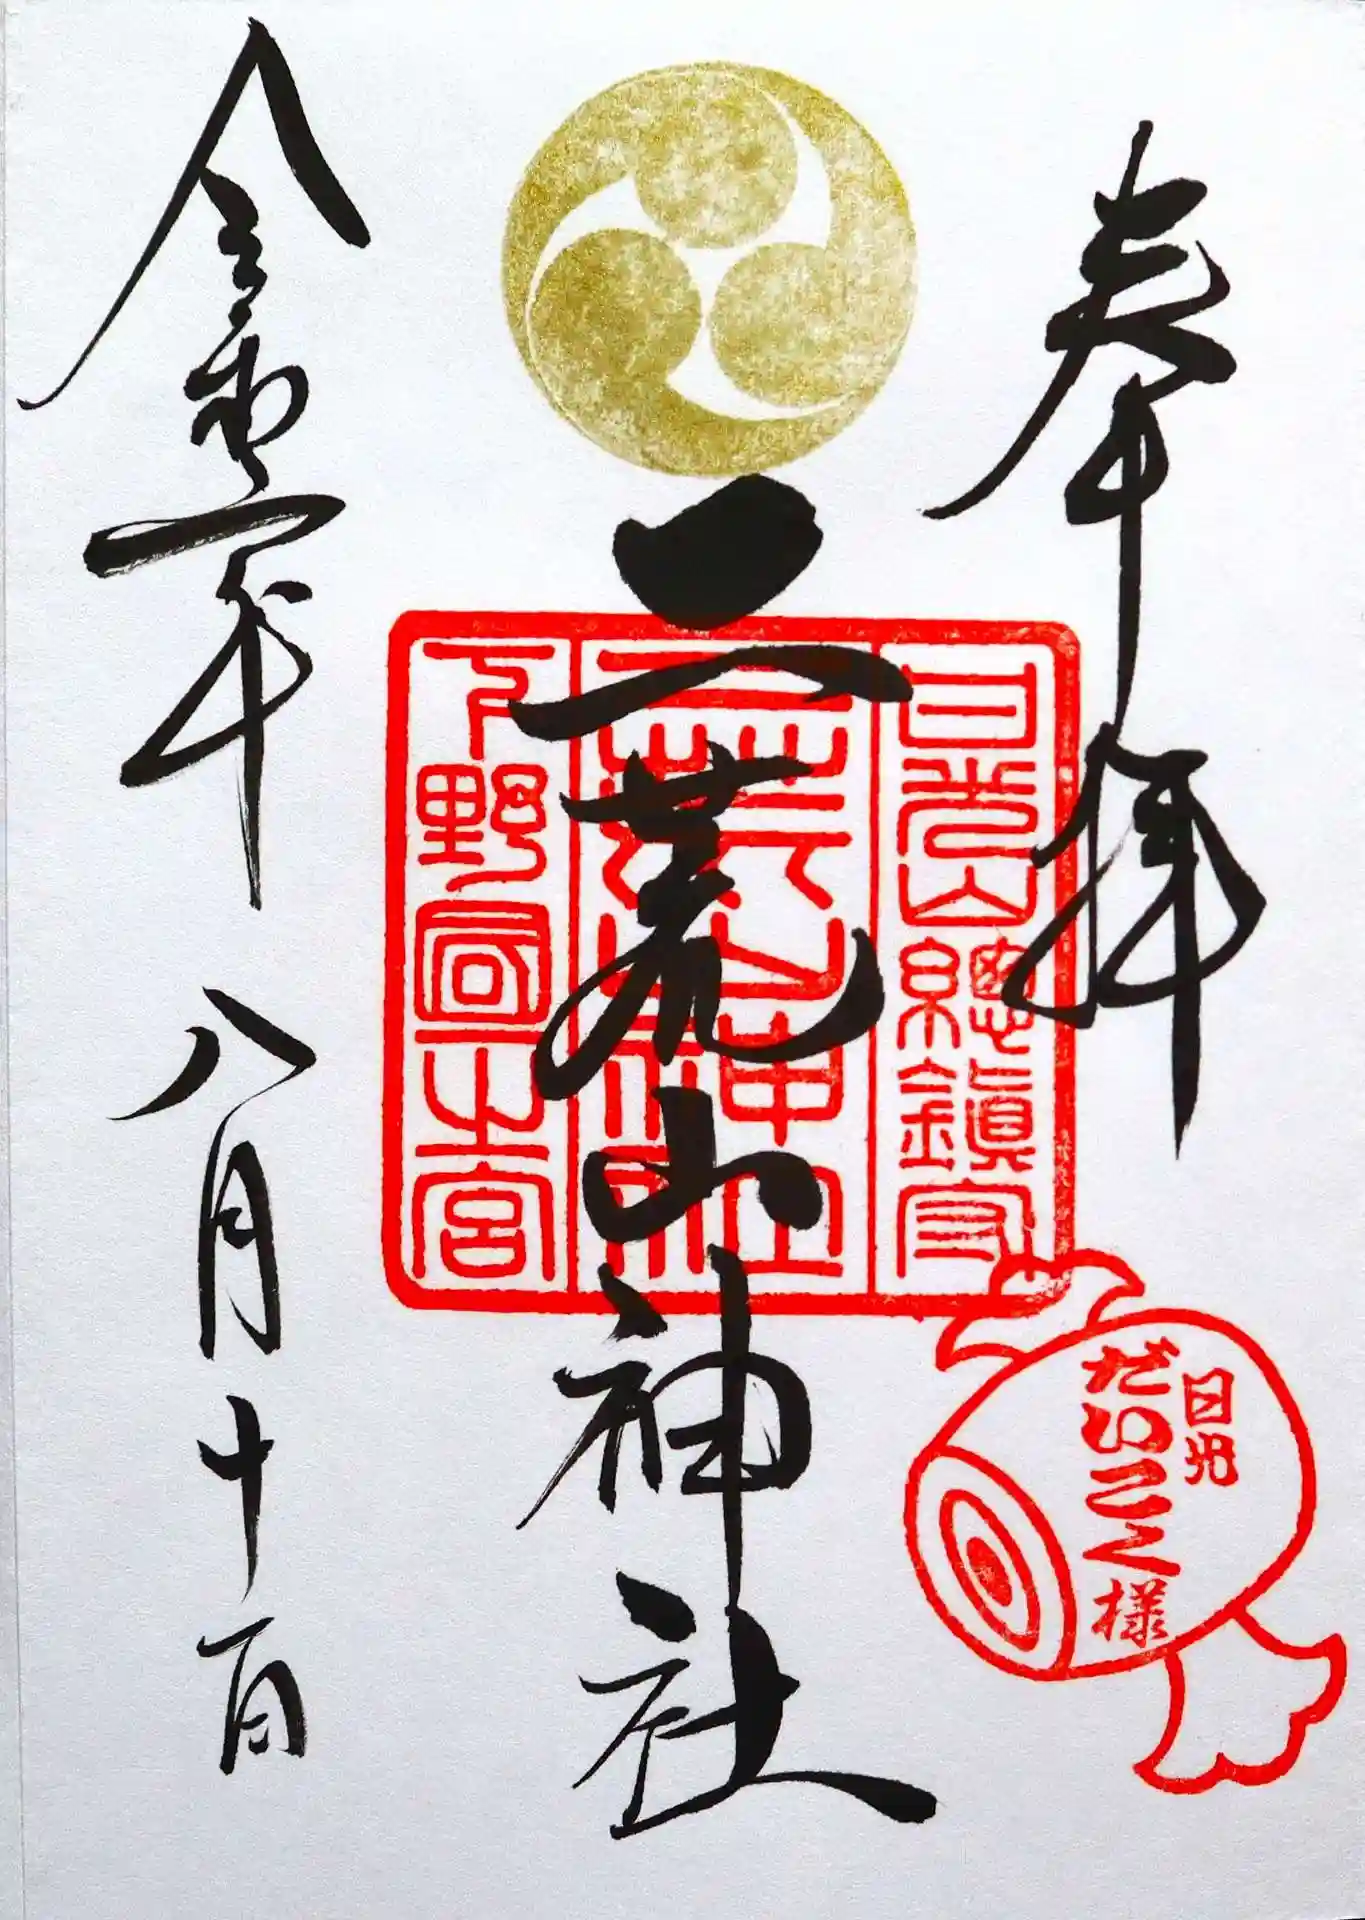 奉拝
日光山總鎮守
日光
だいこく様
二荒山神社
二荒山神社
下野國一之宮
令和 年 八月十一日